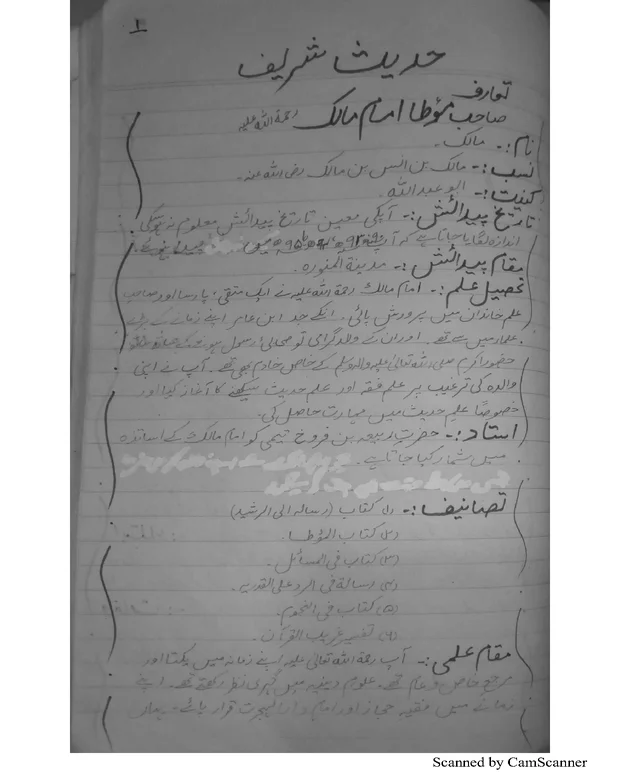 ۱
حدیث شریف
تعارف
صاحب مؤطا امام مالک رحمۃ اللہ علیہ
نام:- مالک۔
نسب:- مالک بن انس بن مالک رضی اللہ عنہ۔
کنیت:- ابو عبد اللہ۔
تاریخ پیدائش:- آپکی معین تاریخ پیدائش معلوم نہ ہوسکی
اندازہ لگایا جاتا ہے کہ آپ ۹۳ھ میں پیدا ہوئے۔
مقام پیدائش:- مدینۃ المنورہ۔
تحصیل علم:- امام مالک رحمۃ اللہ علیہ نے ایک متقی، پارسا اور صاحب
علم خاندان میں پرورش پائی۔ انکے جد ابن عامر اپنے زمانے کے بڑے
علماء میں سے تھے۔ اور ان کے والد گرامی تو صحابی رسول ہونے کے
حضور اکرم صلی اللہ تعالیٰ علیہ والہ وسلم کے خاص خادم بھی تھے۔ آپ نے اپنی
والدہ کی ترغیب پر علم فقہ اور علم حدیث سیکھنے کا آغاز کیا اور
خصوصًا علم حدیث میں مہارت حاصل کی۔
استاد:- حضرت ربیعہ بن فروخ تیمی کو امام مالک کے اساتذہ
میں شمار کیا جاتا ہے۔
تصانیف:- (۱) کتاب (رسالہ الی الرشید)
(۲) کتاب المؤطا۔
(۳) کتاب فی المسائل۔
(۴) رسالۃ فی الرد علی القدریہ۔
(۵) کتاب فی النجوم۔
(۶) تفسیر غریب القرآن۔
مقام علمی:- آپ رحمۃ اللہ تعالیٰ علیہ اپنے زمانہ میں یکتا اور
مرجع خاص و عام تھے۔ علوم دینیہ میں گہری نظر رکھتے تھے۔ اپنے
زمانے میں فقیہ حجاز اور امام دار الہجرت قرار پائے۔
Scanned by CamScanner